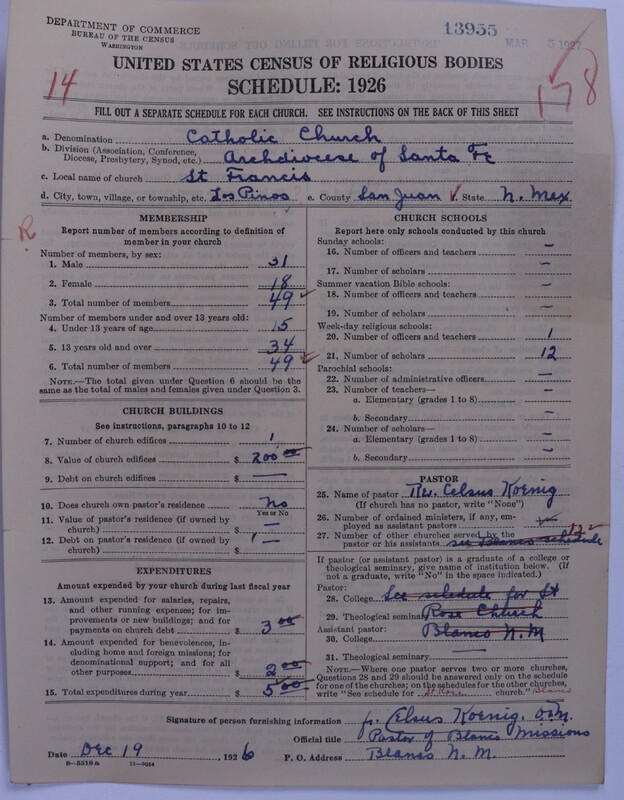 DEPARTMENT OF COMMERCE
BUREAU OF THE CENSUS
WASHINGTON
13955
MAR 5 1927
UNITED STATES CENSUS OF RELIGIOUS BODIES
SCHEDULE: 1926
14
178
FILL OUT A SEPARATE SCHEDULE FOR EACH CHURCH. SEE INSTRUCTIONS ON THE BACK OF THIS SHEET
a. Denomination Catholic Church
b. Division (Association, Conference, Diocese, Presbytery, Synod, etc.) Archdiocese of Santa Fe
c. Local name of church St Francis
d. City, town, village, or township, etc. Los Pinos e. County San Juan State N. Mex
R
MEMBERSHIP
Report number of members according to definition of
member in your church
Number of members, by sex:
1. Male 31
2. Female 18
3. Total number of members 49
Number of members under and over 13 years old:
4. Under 13 years of age 15
5. 13 years old and over 34
6. Total number of members 49
NOTE.—The total given under Question 6 should be
the same as the total of males and females given under Question 3.
CHURCH BUILDINGS
See instructions, paragraphs 10 to 12
7. Number of church edifices 1
8. Value of church edifices $ 200 00
9. Debt on church edifices $ —
10. Does church own pastor's residence? No
Yes or No
11. Value of pastor's residence (if owned by
church) $ —
12. Debt on pastor's residence (if owned by
church) $ —
EXPENDITURES
Amount expended by your church during last fiscal year
13. Amount expended for salaries, repairs,
and other running expenses; for im-
provements or new buildings; and for
payments on church debt $ 3 00
14. Amount expended for benevolences, in-
cluding home and foreign missions; for
denominational support; and for all
other purposes $ 2 00
15. Total expenditures during year $ 5 00
CHURCH SCHOOLS
Report here only schools conducted by this church
Sunday schools:
16. Number of officers and teachers —
17. Number of scholars —
Summer vacation Bible schools:
18. Number of officers and teachers —
19. Number of scholars —
Week-day religious schools:
20. Number of officers and teachers 1
21. Number of scholars 12
Parochial schools:
22. Number of administrative officers —
23. Number of teachers—
a. Elementary (grades 1 to 8) —
b. Secondary —
24. Number of scholars—
a. Elementary (grades 1 to 8) —
b. Secondary —
PASTOR
25. Name of pastor Rev. Celsus Koenig
(If church has no pastor, write "None")
26. Number of ordained ministers, if any, em-
ployed as assistant pastors
27. Number of other churches served by the
pastor or his assistants see Blanco schedule 12
If pastor (or assistant pastor) is a graduate of a college or
theological seminary, give name of institution below. (If
not a graduate, write "No" in the space indicated.)
Pastor:
28. College See schedule for St
29. Theological seminary Rose Church
Assistant pastor:
30. College Blanco N. M
31. Theological seminary
NOTE.—Where one pastor serves two or more churches,
Questions 28 and 29 should be answered only on the schedule
for one of the churches; on the schedules for the other churches,
write "See schedule for St Rose church." Blanco
Signature of person furnishing information fr. Celsus Koenig, O.F.M.
Official title Pastor of Blanco Missions
Date Dec 19, 1926 P. O. Address Blanco N. M.
8—5518a 11—9064